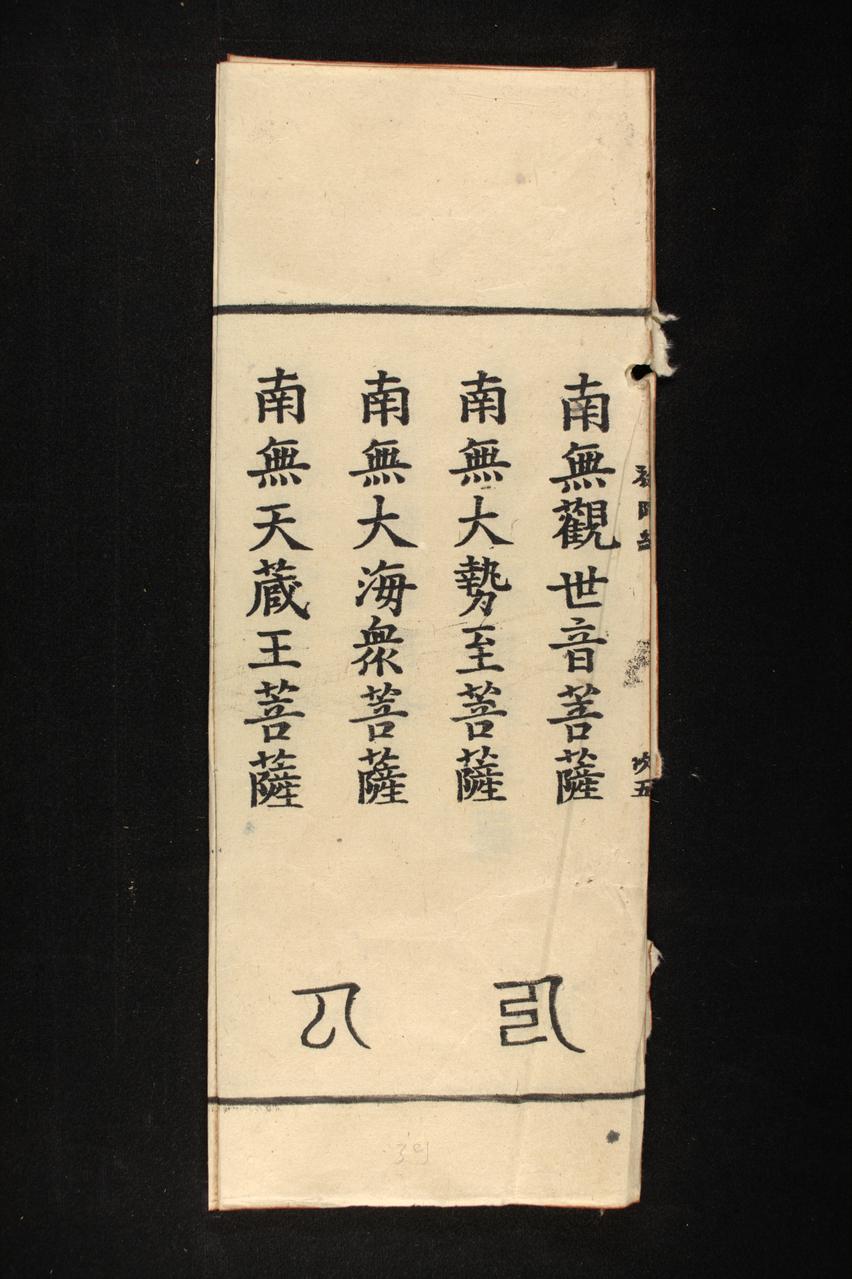 南無觀世音菩薩
南無大勢至菩薩
南無大海衆菩薩
南無天蔵王菩薩
39